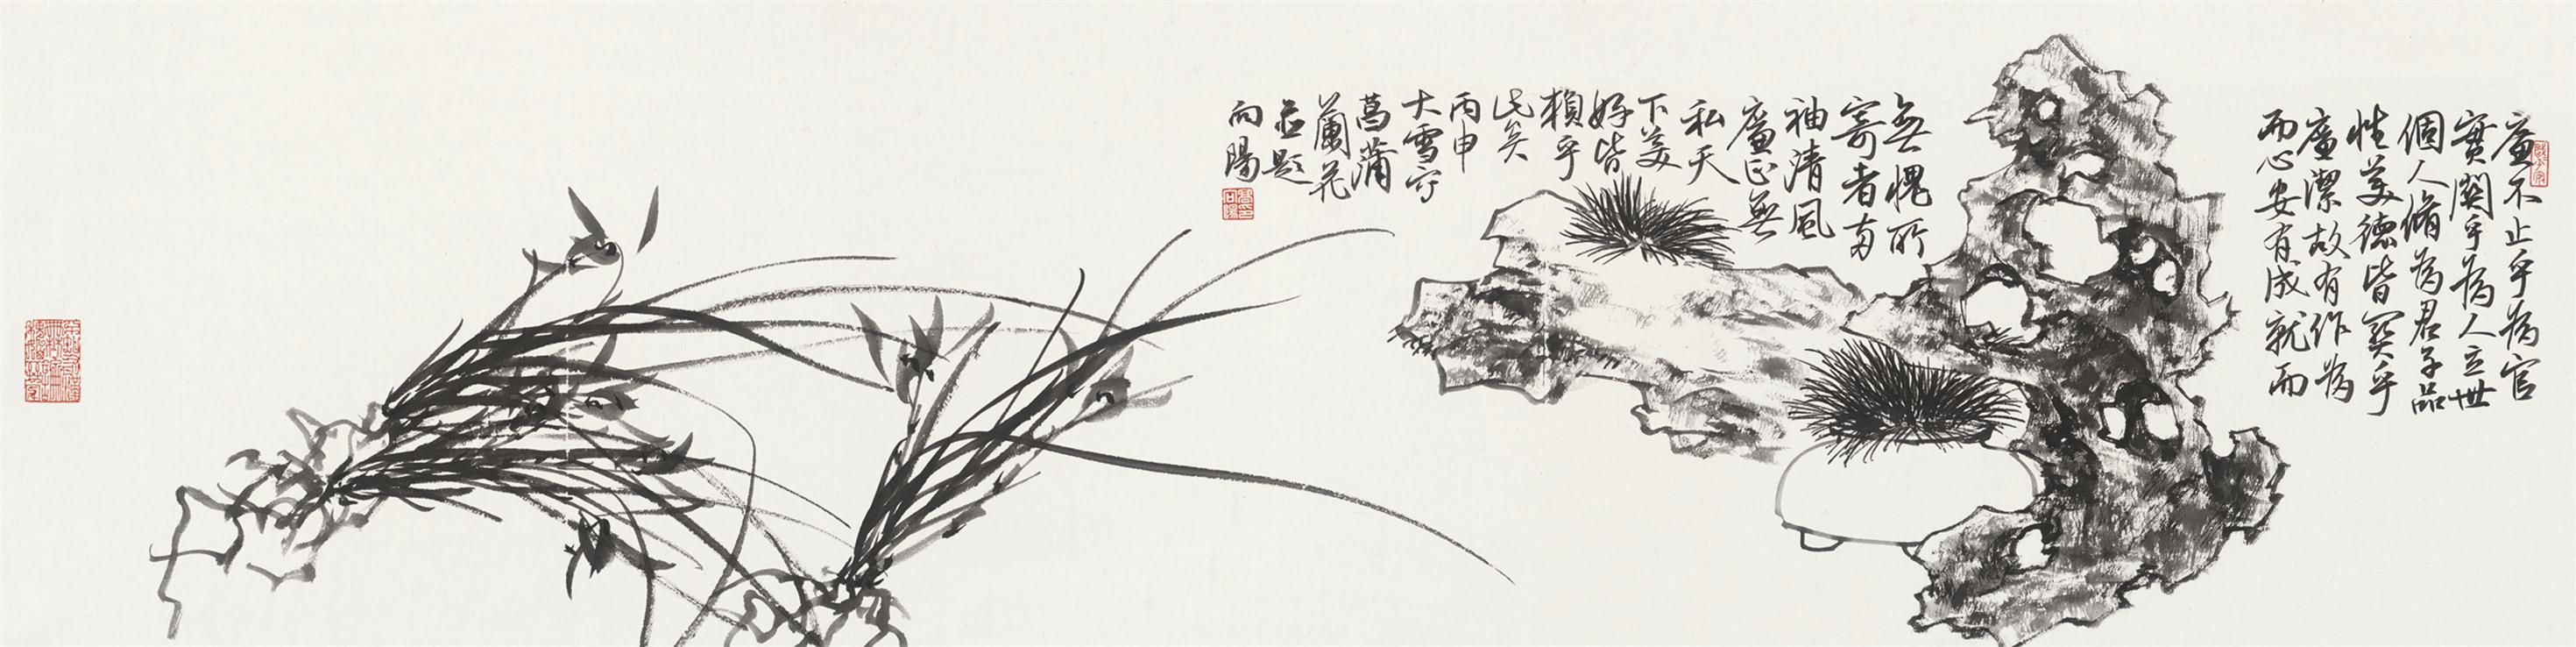 廉不止乎為官
實關乎為人立世
個人脩為君子品
性美德皆乎
廉潔故有作為
而心安有成就而
無愧所
寄者兩
袖清風
廉正無
私天
下美
好皆
賴乎
此矣
丙申
大雪寫
菖蒲
蘭花
並題
向陽